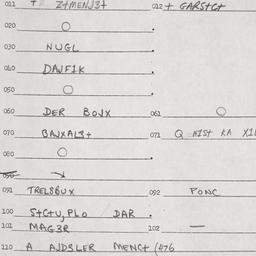 011 T Z+MENJ3+ 012 + GARS+C+
020 O
030 NUGL
040 DAJF1K
050 O
060 DER BOJX 061 O
070 BAJXAL3+ 071 Q HIS+ KA
080 O
090
091 TRELSBUX 092 PONC
100 S+C+U, PLO DAR .
101 MAG3R 102 —
110 A AJD3LER MENC+ (476